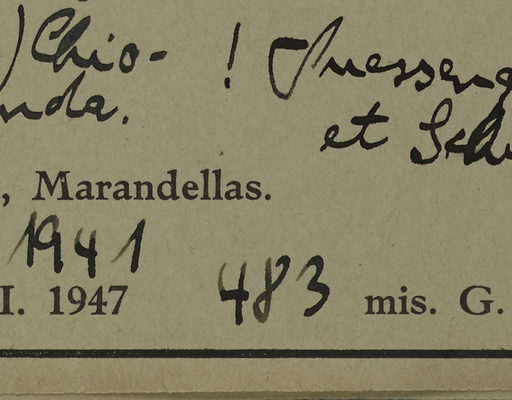 ) Chio- !
nda. et
, Marandellas.
1941
I. 1947 483 mis. G.